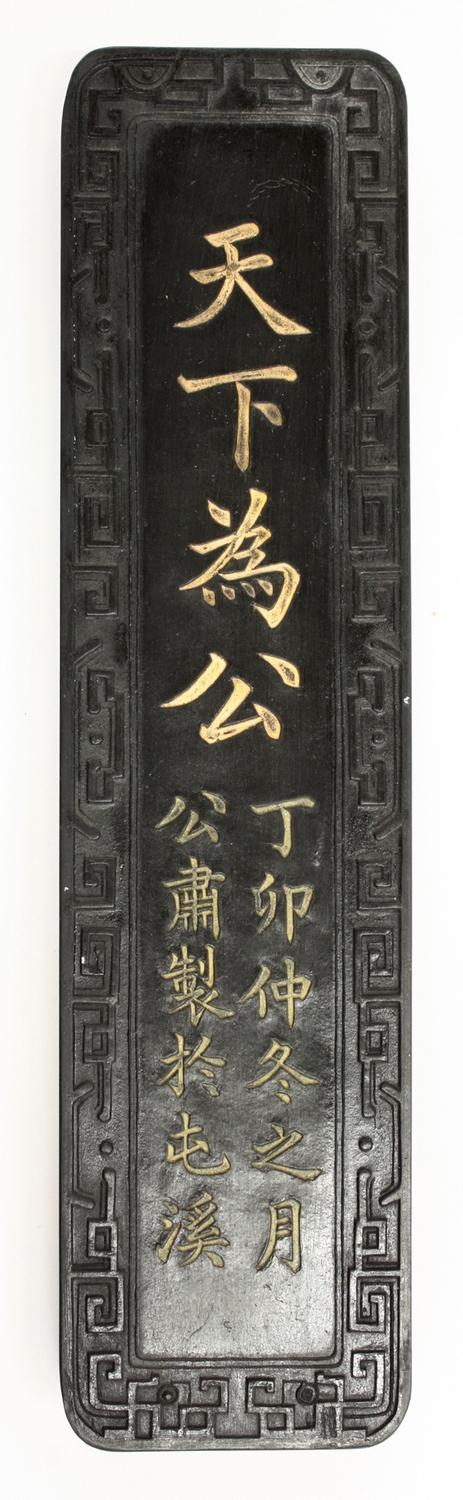 天下為公
丁卯仲冬之月
公肅製於屯溪